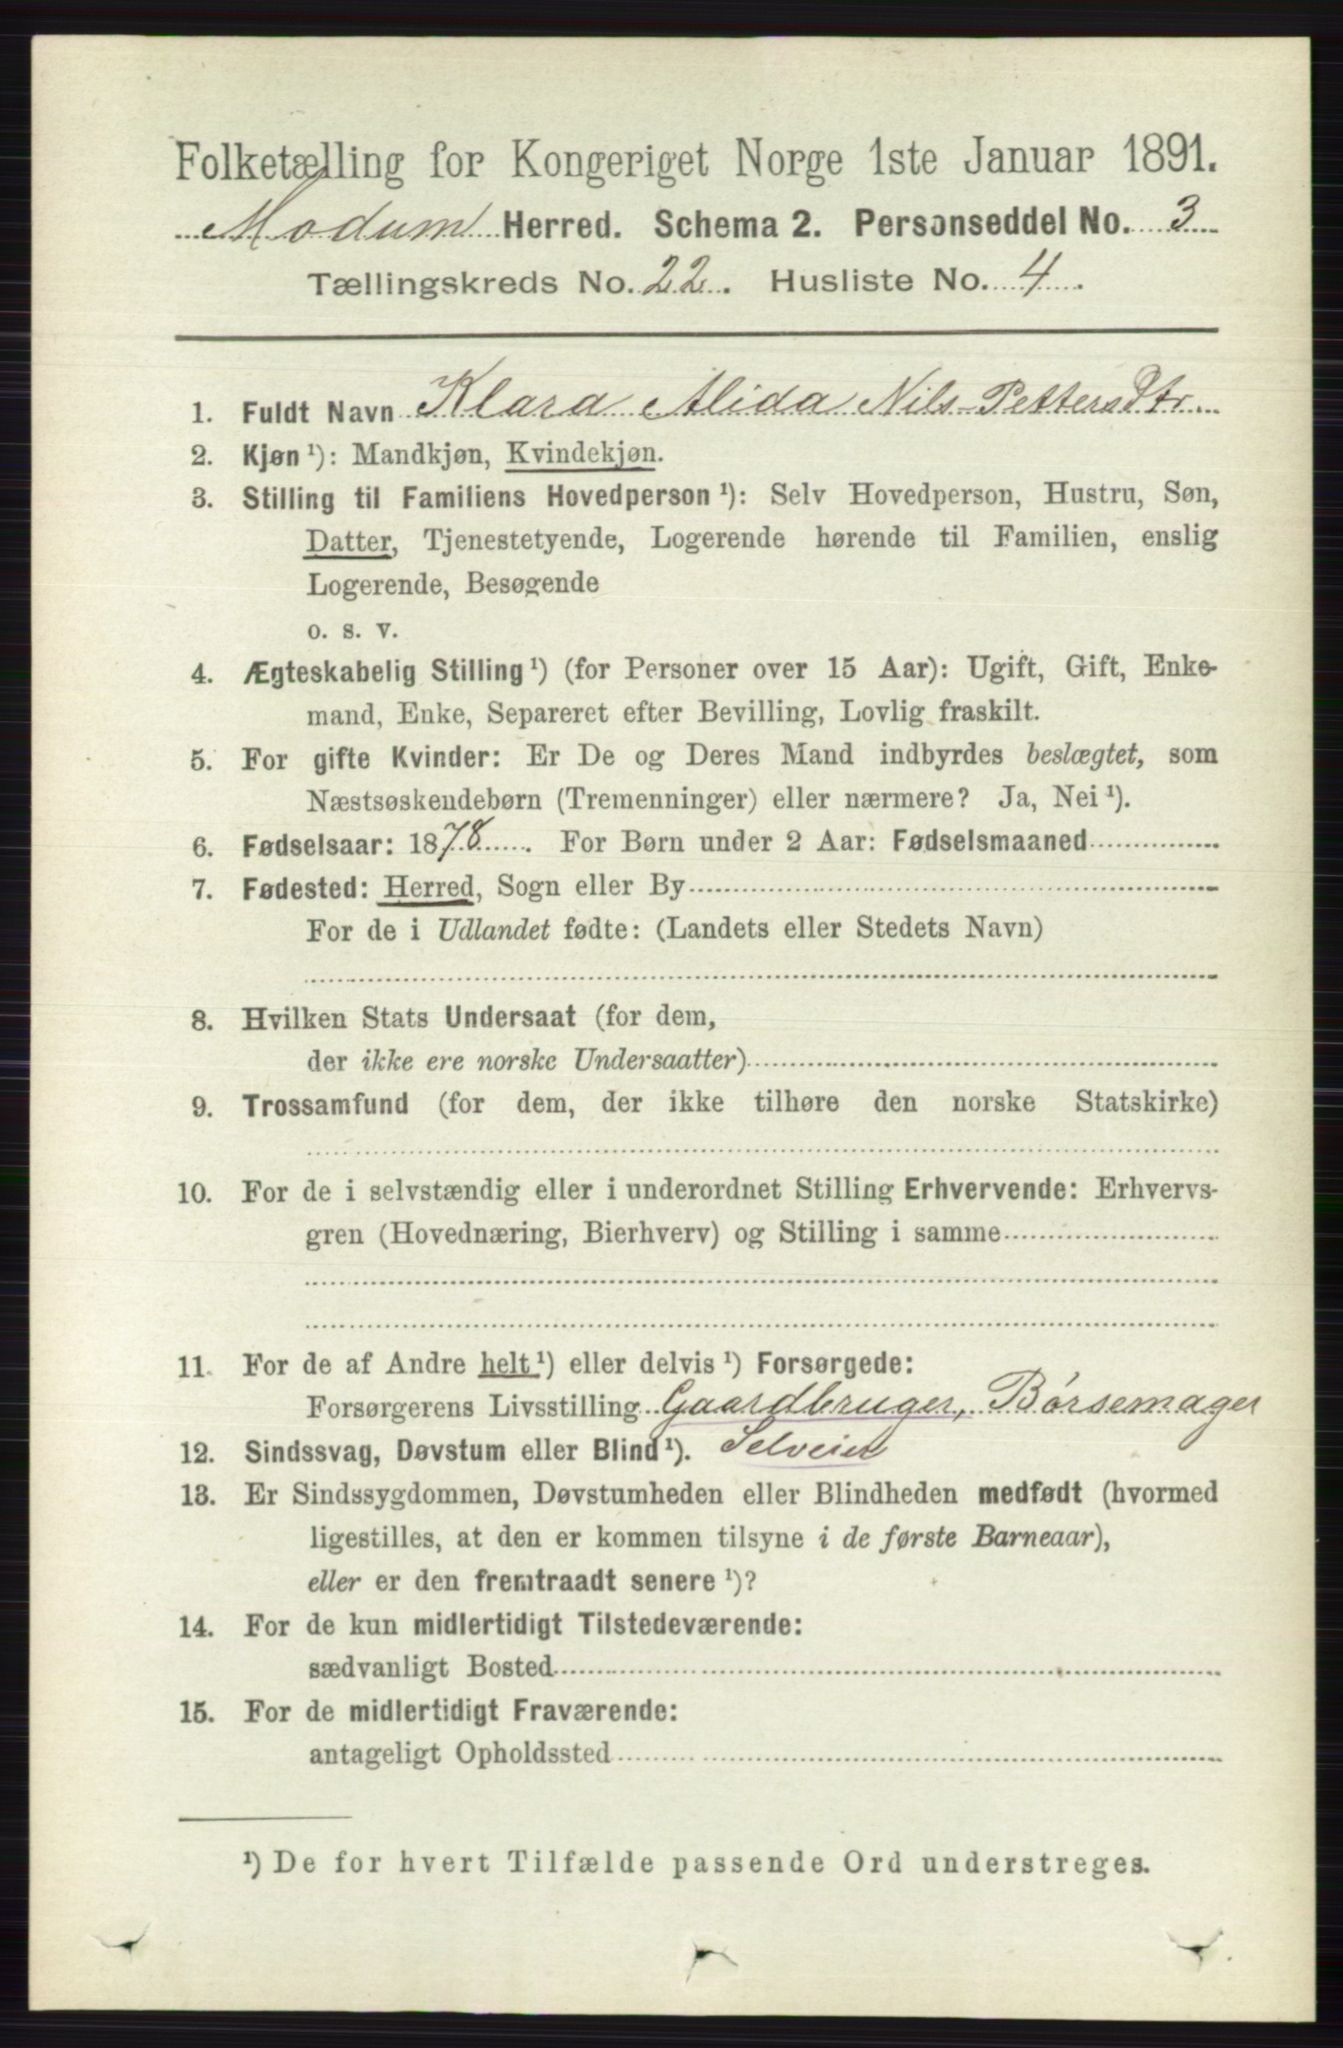 Folketælling for Kongeriget Norge 1ste Januar 1891.
Modum Herred. Schema 2. Personseddel No. 3
Tællingskreds No. 22. Husliste No. 4.
1. Fuldt Navn Klara Alida Nils-Pettersdtr.
2. Kjøn¹): Mandkjøn, Kvindekjøn.
3. Stilling til Familiens Hovedperson¹): Selv Hovedperson, Hustru, Søn,
Datter, Tjenestetyende, Logerende hørende til Familien, enslig
Logerende, Besøgende
o. s. v.
4. Ægteskabelig Stilling¹) (for Personer over 15 Aar): Ugift, Gift, Enke-
mand, Enke, Separeret efter Bevilling, Lovlig fraskilt.
5. For gifte Kvinder: Er De og Deres Mand indbyrdes beslægtet, som
Næstsøskendebørn (Tremenninger) eller nærmere? Ja, Nei¹).
6. Fødselsaar: 1878. For Børn under 2 Aar: Fødselsmaaned
7. Fødested: Herred, Sogn eller By
For de i Udlandet fødte: (Landets eller Stedets Navn)
8. Hvilken Stats Undersaat (for dem,
der ikke ere norske Undersaatter)
9. Trossamfund (for dem, der ikke tilhøre den norske Statskirke)
10. For de i selvstændig eller i underordnet Stilling Erhvervende: Erhvervs-
gren (Hovednæring, Bierhverv) og Stilling i samme
11. For de af Andre helt¹) eller delvis¹) Forsørgede:
Forsørgerens Livsstilling Gaardbruger, Børsemager
12. Sindssvag, Døvstum eller Blind¹). Selveier
13. Er Sindssygdommen, Døvstumheden eller Blindheden medfødt (hvormed
ligestilles, at den er kommen tilsyne i de første Barneaar),
eller er den fremtraadt senere¹)?
14. For de kun midlertidigt Tilstedeværende:
sædvanligt Bosted
15. For de midlertidigt Fraværende:
antageligt Opholdssted
¹) De for hvert Tilfælde passende Ord understreges.